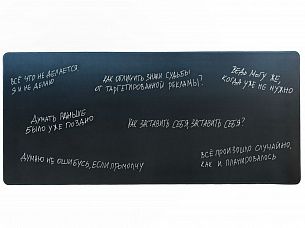 ВСЁ ЧТО НЕ ДЕЛАЕТСЯ
Я И НЕ ДЕЛАЮ
КАК ОТЛИЧИТЬ ЗНАКИ СУДЬБЫ
ОТ ТАРГЕТИРОВАННОЙ РЕКЛАМЫ?
ВЕДЬ МОГУ ЖЕ,
КОГДА УЖЕ НЕ НУЖНО
ДУМАТЬ РАНЬШЕ
БЫЛО УЖЕ ПОЗДНО
КАК ЗАСТАВИТЬ СЕБЯ ЗАСТАВИТЬ СЕБЯ?
ДУМАЮ НЕ ОШИБУСЬ, ЕСЛИ ПРОМОЛЧУ
ВСЁ ПРОИЗОШЛО СЛУЧАЙНО,
КАК И ПЛАНИРОВАЛОСЬ